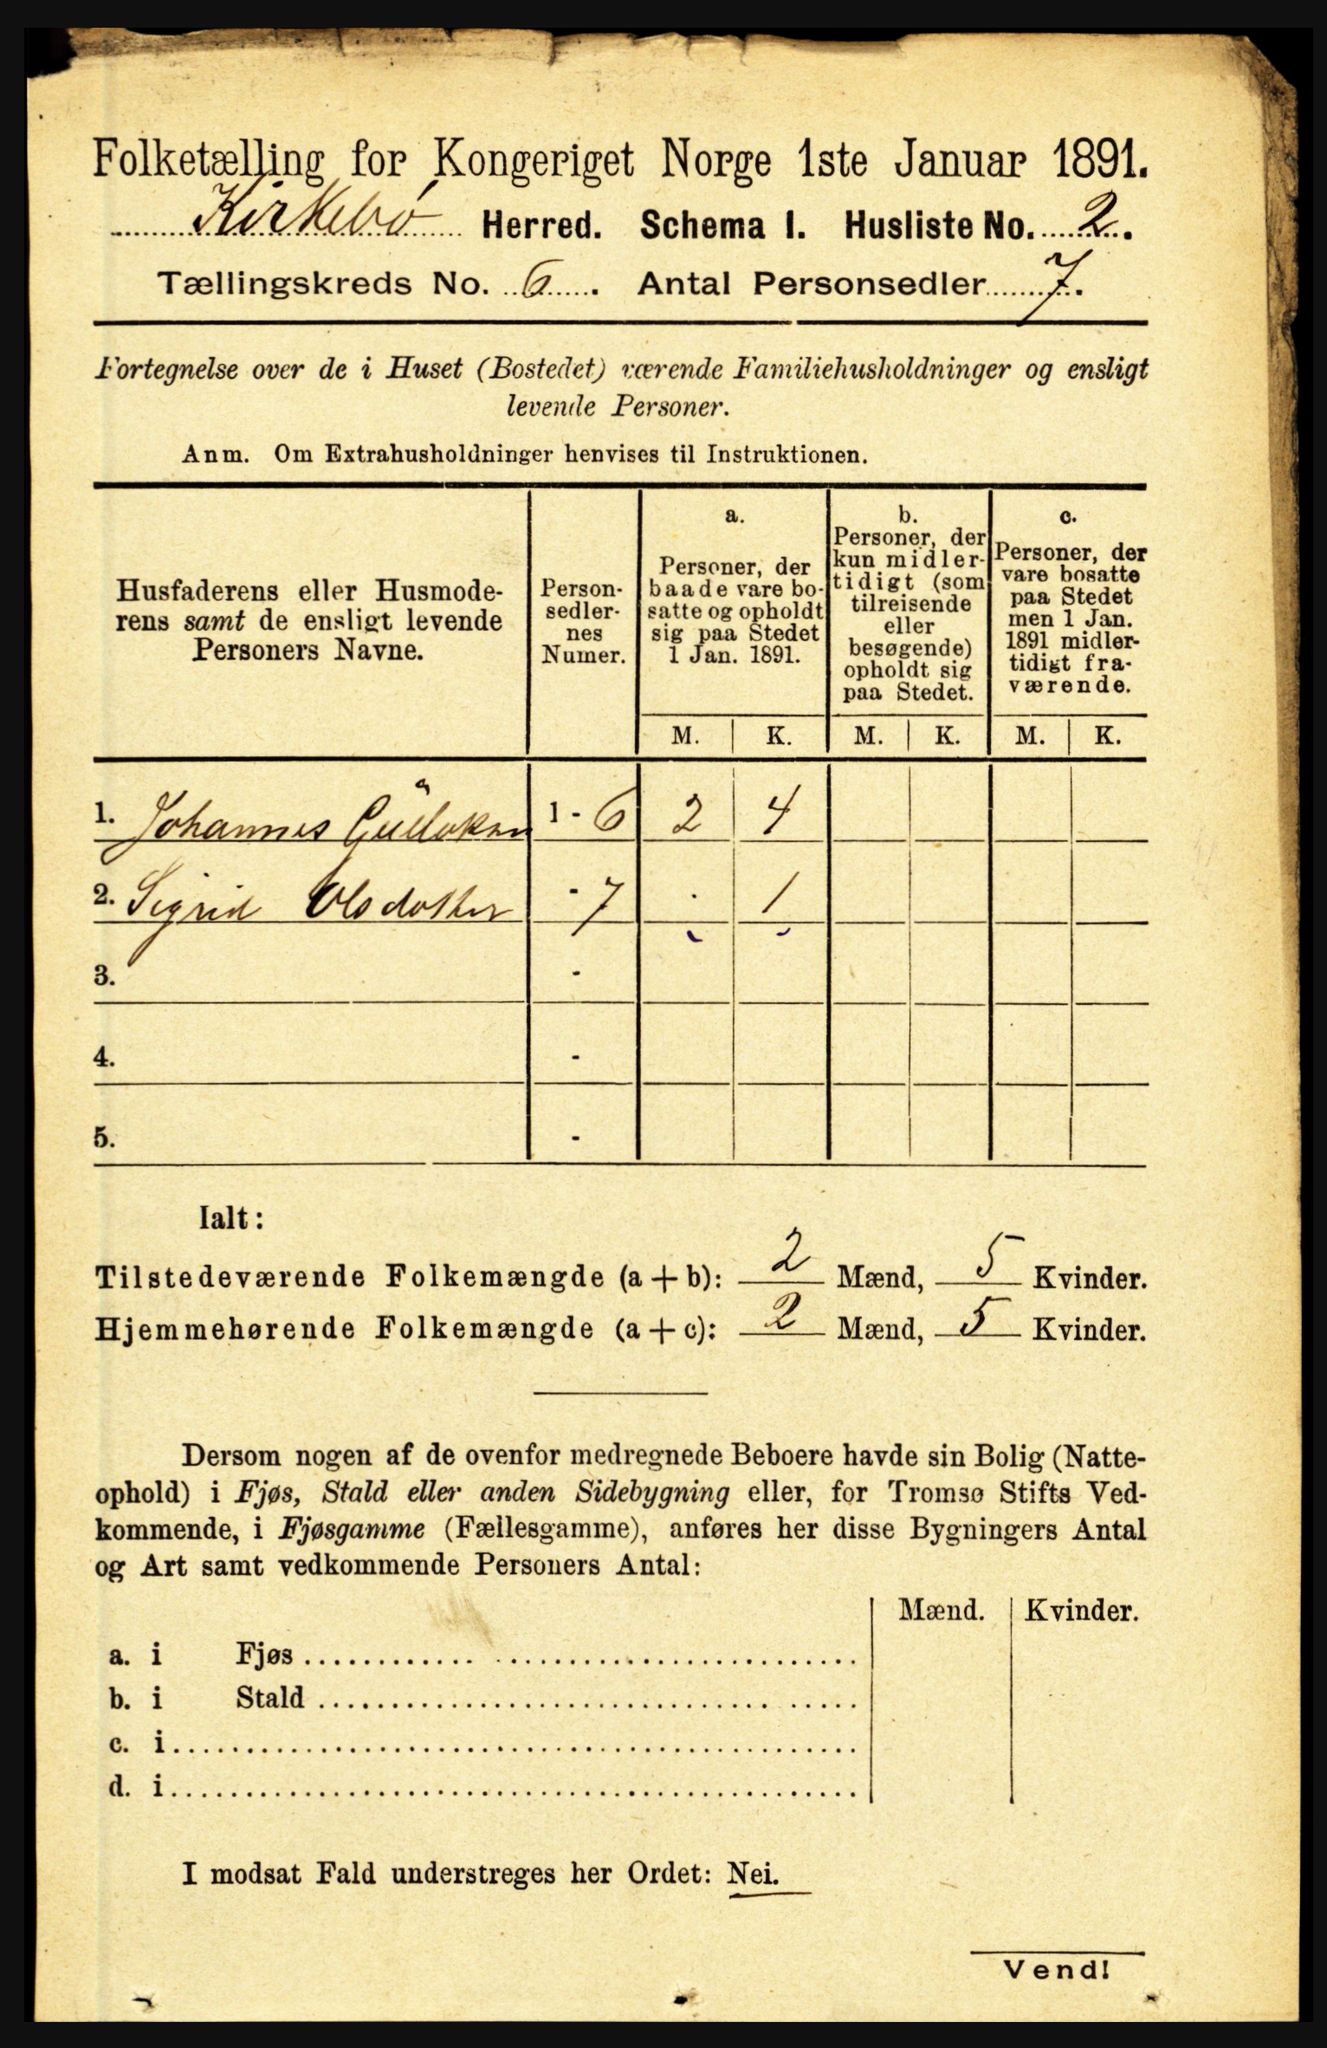 Folketælling for Kongeriget Norge 1ste Januar 1891.
Kirkebø Herred. Schema I. Husliste No. 2.
Tællingskreds No. 6. Antal Personsedler 7.
Fortegnelse over de i Huset (Bostedet) værende Familiehusholdninger og ensligt
levende Personer.
Anm. Om Extrahusholdninger henvises til Instruktionen.
Husfaderens eller Husmode-
rens samt de ensligt levende
Personers Navne.
Person-
sedler-
nes
Numer.
a.
Personer, der
baade vare bo-
satte og opholdt
sig paa Stedet
1 Jan. 1891.
b.
Personer, der
kun midler-
tidigt (som
tilreisende
eller
besøgende)
opholdt sig
paa Stedet.
c.
Personer, der
vare bosatte
paa Stedet
men 1 Jan.
1891 midler-
tidigt fra-
værende.
M. K. M. K. M. K.
1. Johannes 1 - 6 2 4
2. Sigrid Olsdotter - 7 . 1
3. -
4. -
5. -
Ialt:
Tilstedeværende Folkemængde (a + b): 2 Mænd, 5 Kvinder.
Hjemmehørende Folkemængde (a + c): 2 Mænd, 5 Kvinder.
Dersom nogen af de ovenfor medregnede Beboere havde sin Bolig (Natte-
ophold) i Fjøs, Stald eller anden Sidebygning eller, for Tromsø Stifts Ved-
kommende, i Fjøsgamme (Fællesgamme), anføres her disse Bygningers Antal
og Art samt vedkommende Personers Antal:
Mænd. Kvinder.
a. i Fjøs
b. i Stald
c. i
d. i
I modsat Fald understreges her Ordet: Nei.
Vend!